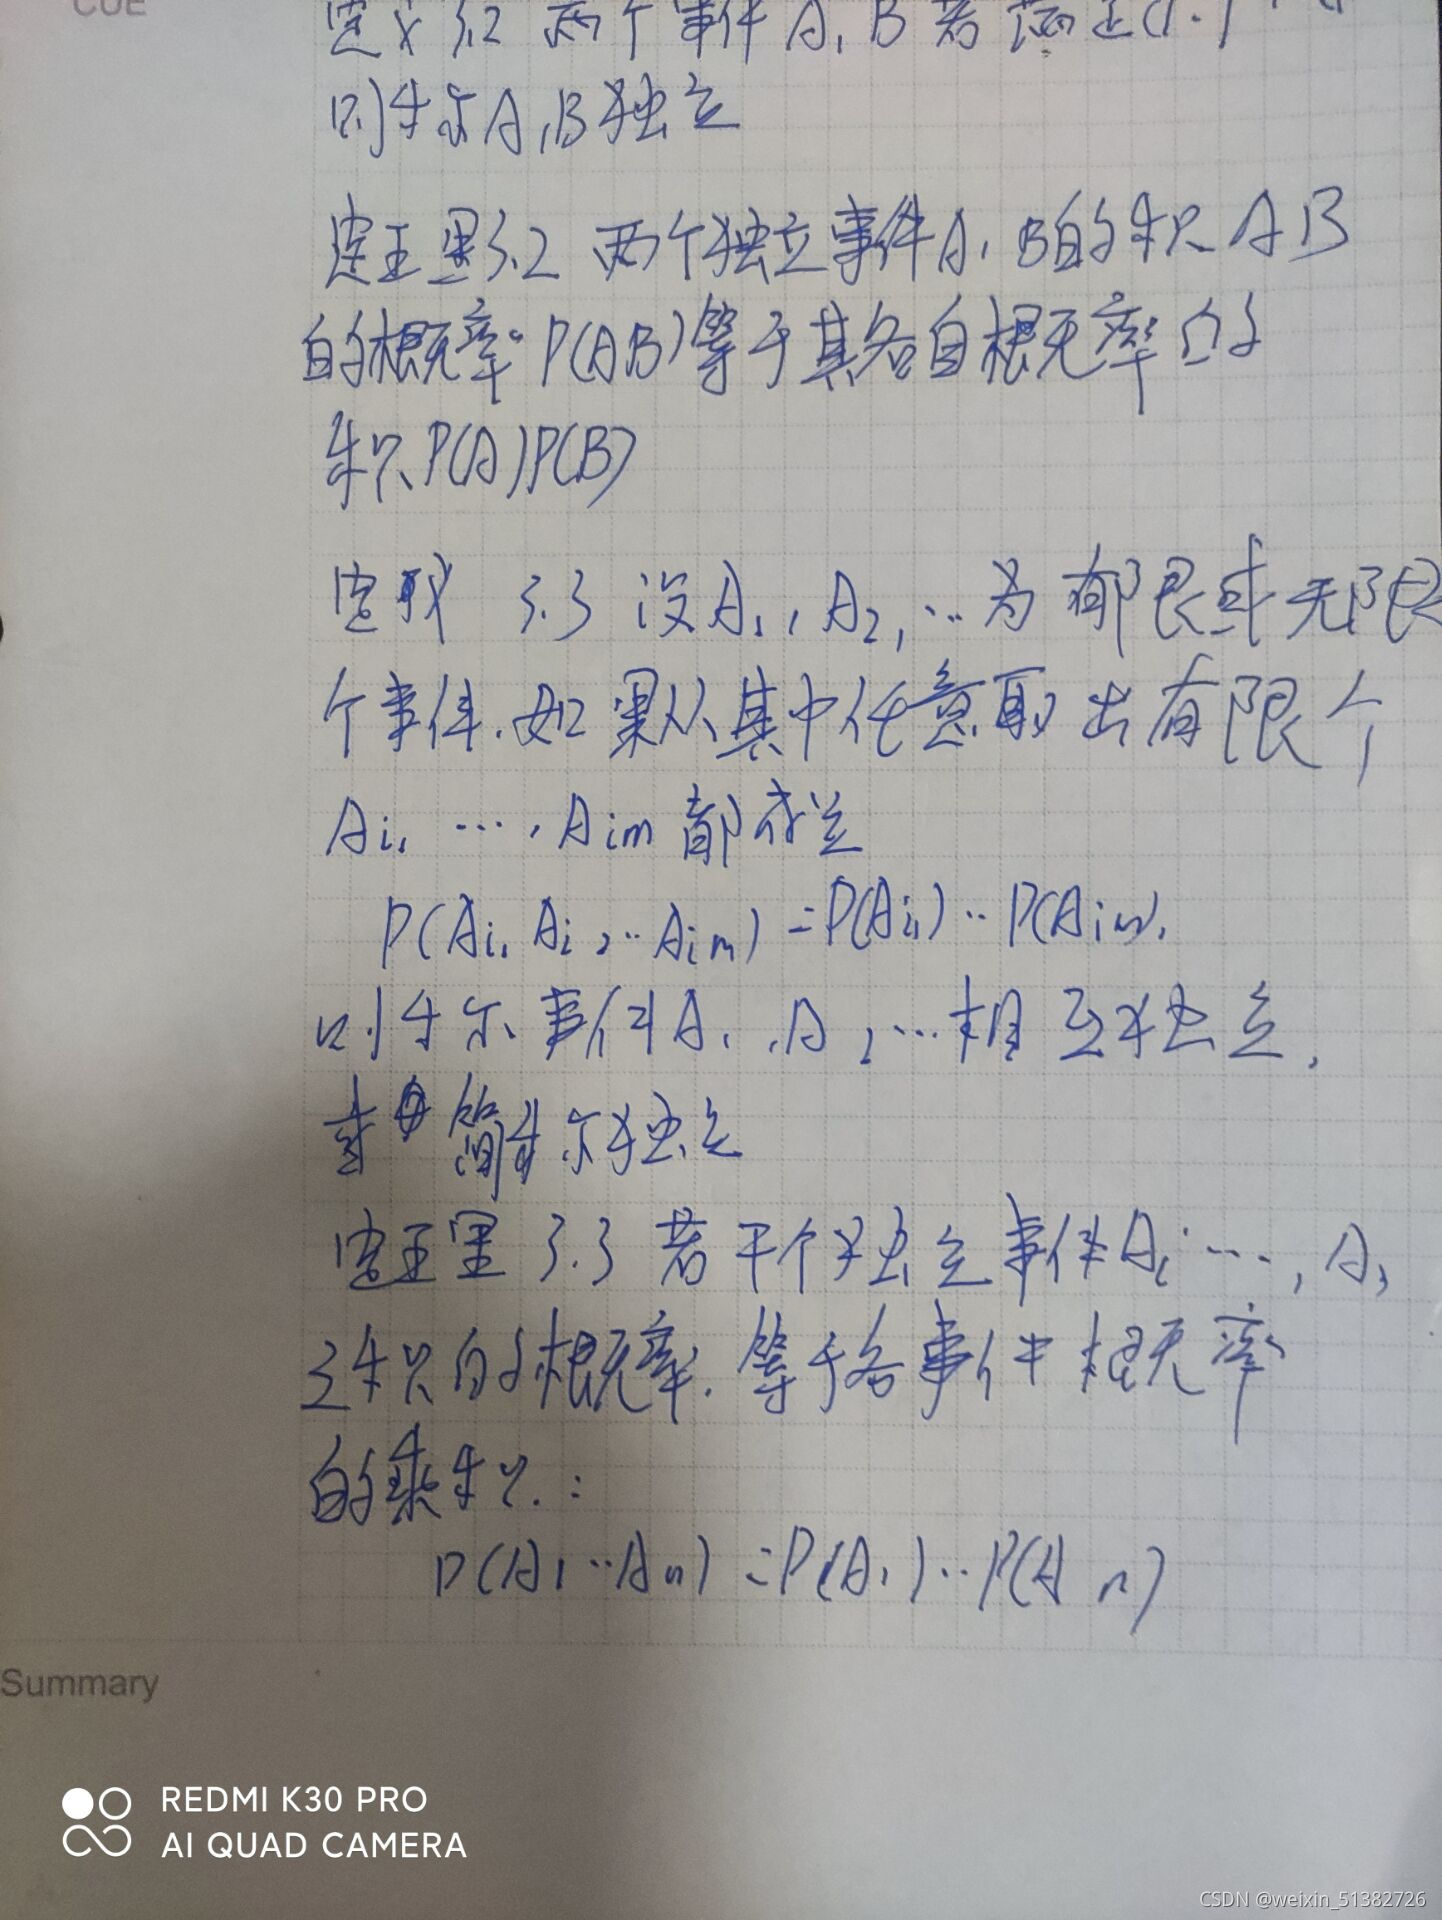 CUE
定义 3.2 两个事件 A, B 若满足
则称A,B独立
定理3.2 两个独立事件A, B的积 AB
的概率P(AB)等于其各自概率的
积P(A)P(B)
定义 3.3 设A1, A2, … 为有限或无限
个事件.如果从其中任意取出有限个
Ai1 …, Aim 都成立
P(Ai1 Ai2 … Aim) = P(Ai1) … P(Aim),
则称事件A1, A2, … 相互独立,
简称独立
定理 3.3 若干个独立事件A1 …, An
之积的概率.等于各事件 概率
的乘积:
P(A1 … An) = P(A1) … P(An)
Summary
REDMI K30 PRO
AI QUAD CAMERA
CSDN @weixin_51382726